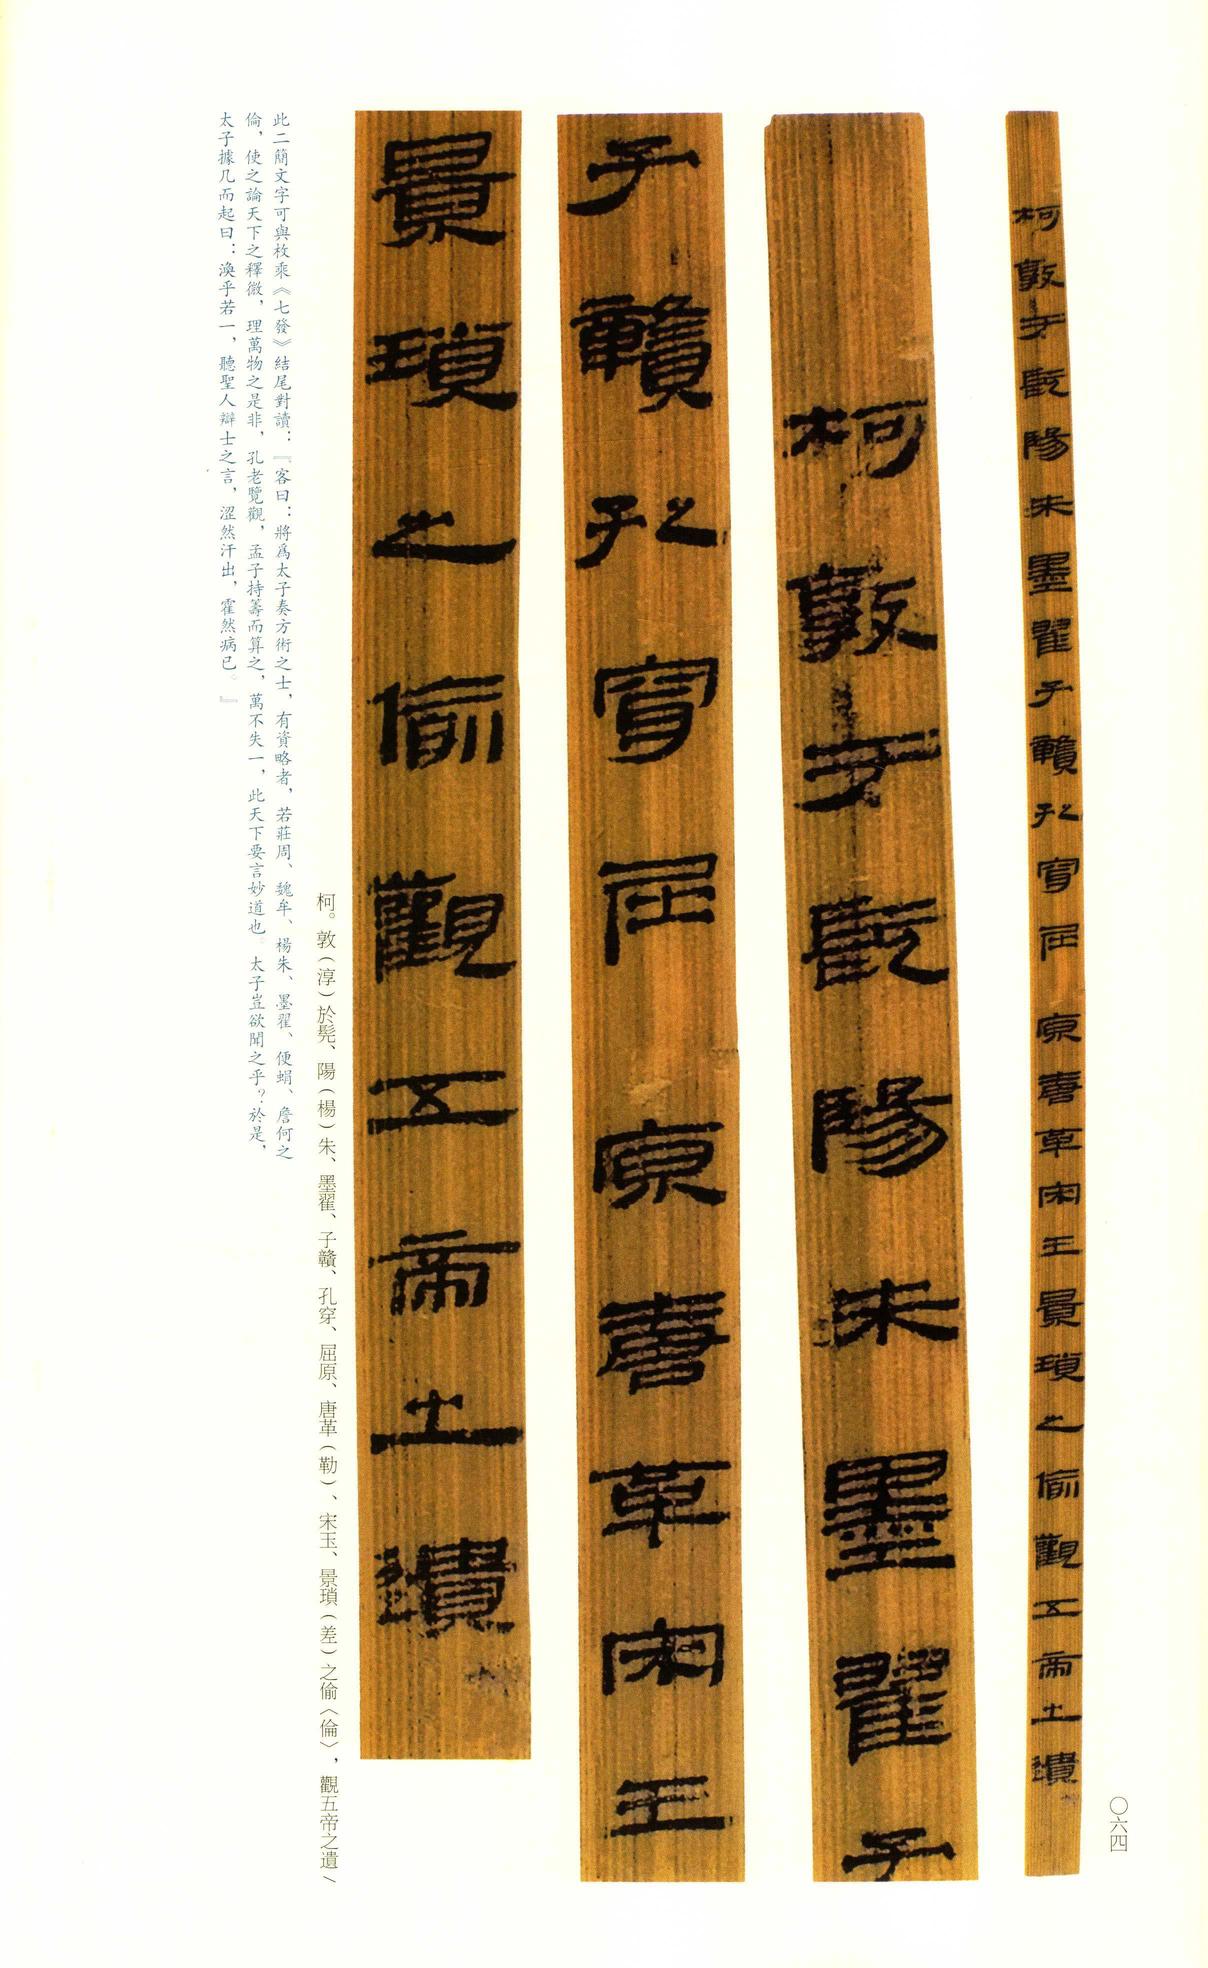 〇六四
柯敦於髡陽朱墨翟子贛孔穿屈原唐革宋玉景瑣之偷觀五帝之遺
柯敦於髡陽朱墨翟子
子贛孔穿屈原唐革宋玉
景瑣之偷觀五帝之遺
柯。敦（淳）於髡、陽（楊）朱、墨翟、子贛、孔穿、屈原、唐革（勒）、宋玉、景瑣（差）之偷〈倫〉，觀五帝之遺／
此二簡文字可與枚乘《七發》結尾對讀：『客曰：將爲太子奏方術之士，有資略者，若莊周、魏牟、楊朱、墨翟、便蜎、詹何之
倫，使之論天下之釋微，理萬物之是非，孔老覽觀，孟子持籌而算之，萬不失一，此天下要言妙道也。太子豈欲聞之乎？於是，
太子據几而起曰：渙乎若一，聽聖人辯士之言，涊然汗出，霍然病已。』